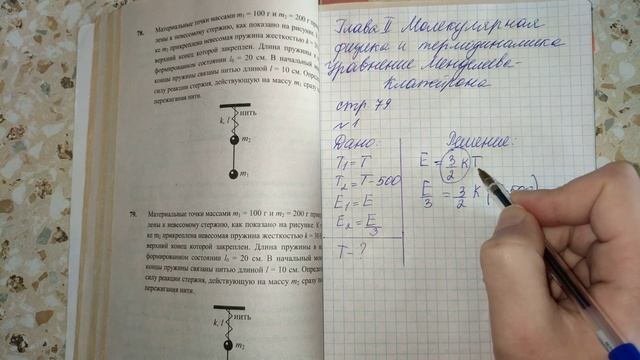 78. Материальные точки массами m₁ = 100 г и m₂ = 200 г
лены к невесомому стержню, как показано на рисунке.
ке m₂ прикреплена невесомая пружина жесткостью k =
верхний конец которой закреплен. Длина пружины
формированном состоянии l₀ = 20 см. В начальный
концы пружины связаны нитью длиной l = 10 см.
силу реакции стержня, действующую на массу m₁ сразу
пережигания нити.
нить
k, l
m₂
m₁
79. Материальные точки массами m₁ = 100 г и m₂ = 200 г
лены к невесомому стержню, как показано на рисунке. К
ке m₂ прикреплена невесомая пружина жесткостью k =
верхний конец которой закреплен. Длина пружины
формированном состоянии l₀ = 20 см. В начальный
концы пружины связаны нитью длиной l = 10 см.
силу реакции стержня, действующую на массу m₂ сразу
пережигания нити.
нить
k, l
m₂
Глава II Молекулярная
физика и термодинамика
уравнение Менделеева-
Клапейрона
стр. 79
№1
Дано:
T₁ = T
T₂ = T - 500
E₁ = E
E₂ = E/3
T - ?
Решение:
E = 3/2 k T
E/3 = 3/2 k